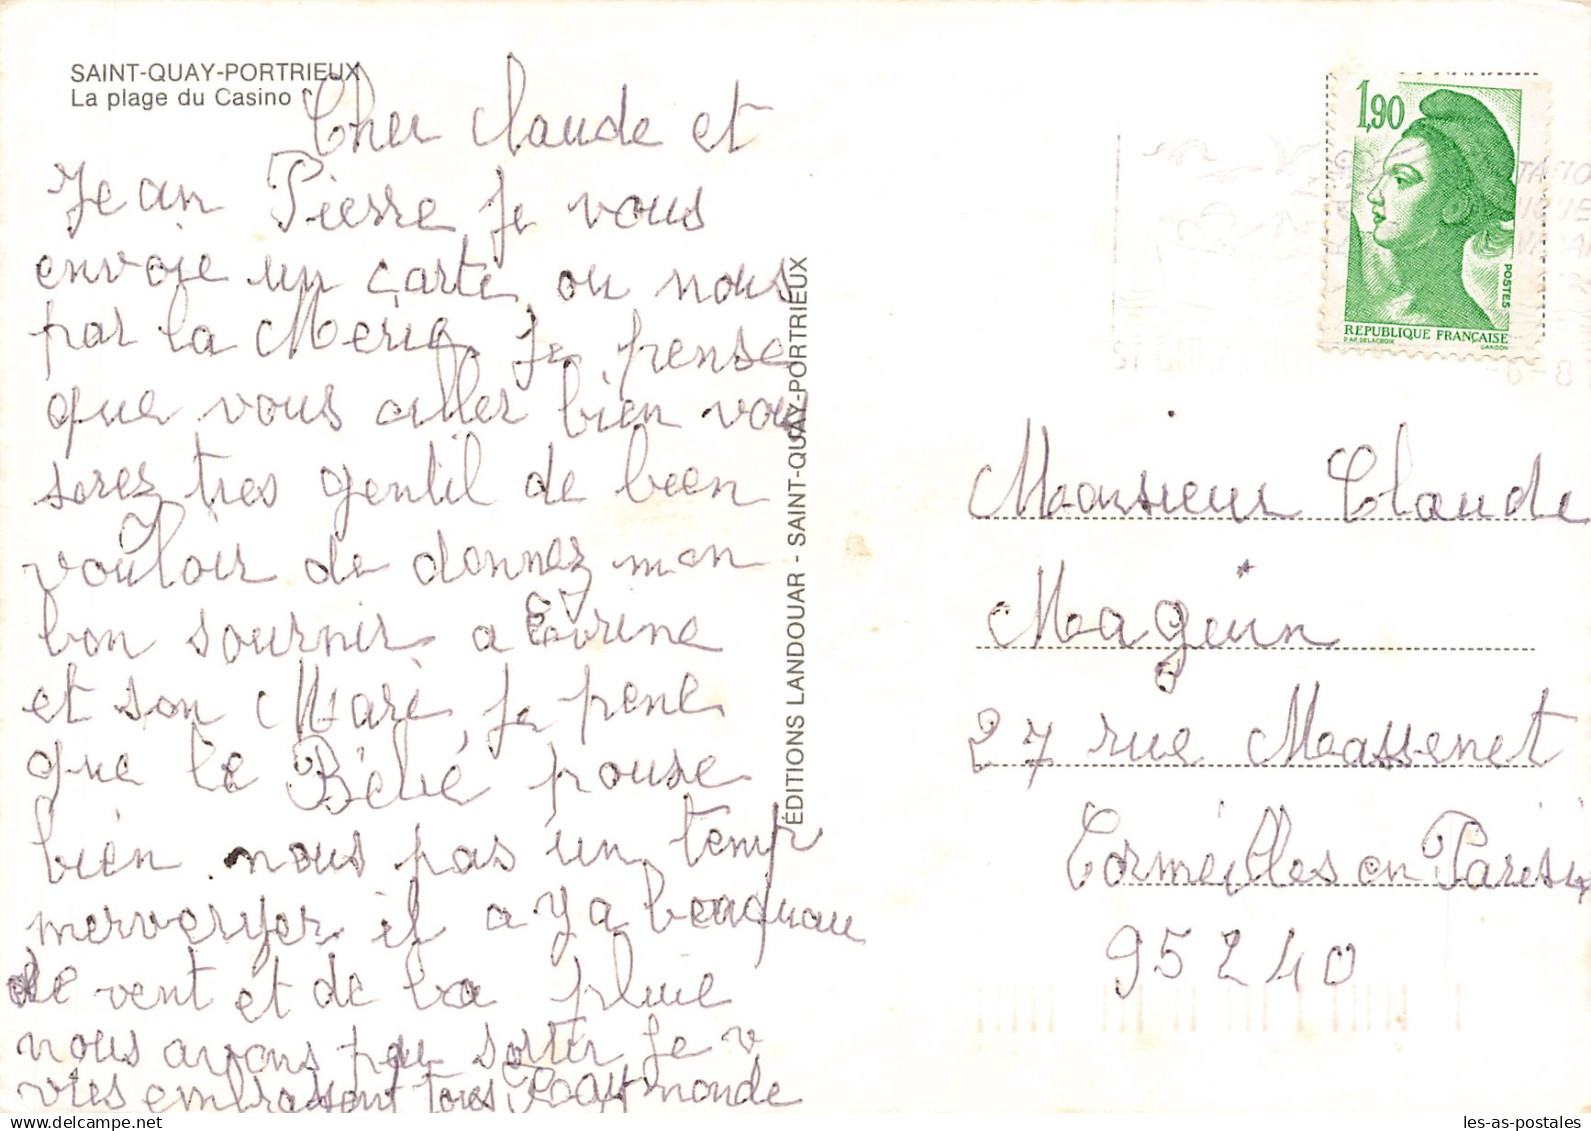 SAINT-QUAY-PORTRIEUX
La plage du Casino
Cher Claude et
Jean Pierre je vous
envoie un carte ou nous
par la Merie. Je pense
que vous aller bien vous
serez tres gentil de bien
vouloir de donnez mon
bon sournir a Evrine
et son Mari, je pene
que le Bébé pouse
bien nous pas un temp
merveryer il a y a beauquau
de vent et de la pluie
nous avons peu sortir je v
vous embrassent tous Raymonde
ÉDITIONS LANDOUAR - SAINT-QUAY-PORTRIEUX
1,90
POSTES
REPUBLIQUE FRANÇAISE
D'AP. DELACROIX
GANDON
Monsieur Claude
Magein
27 rue Massenet
Cormeilles en Parisis
95240
les-as-postales.com